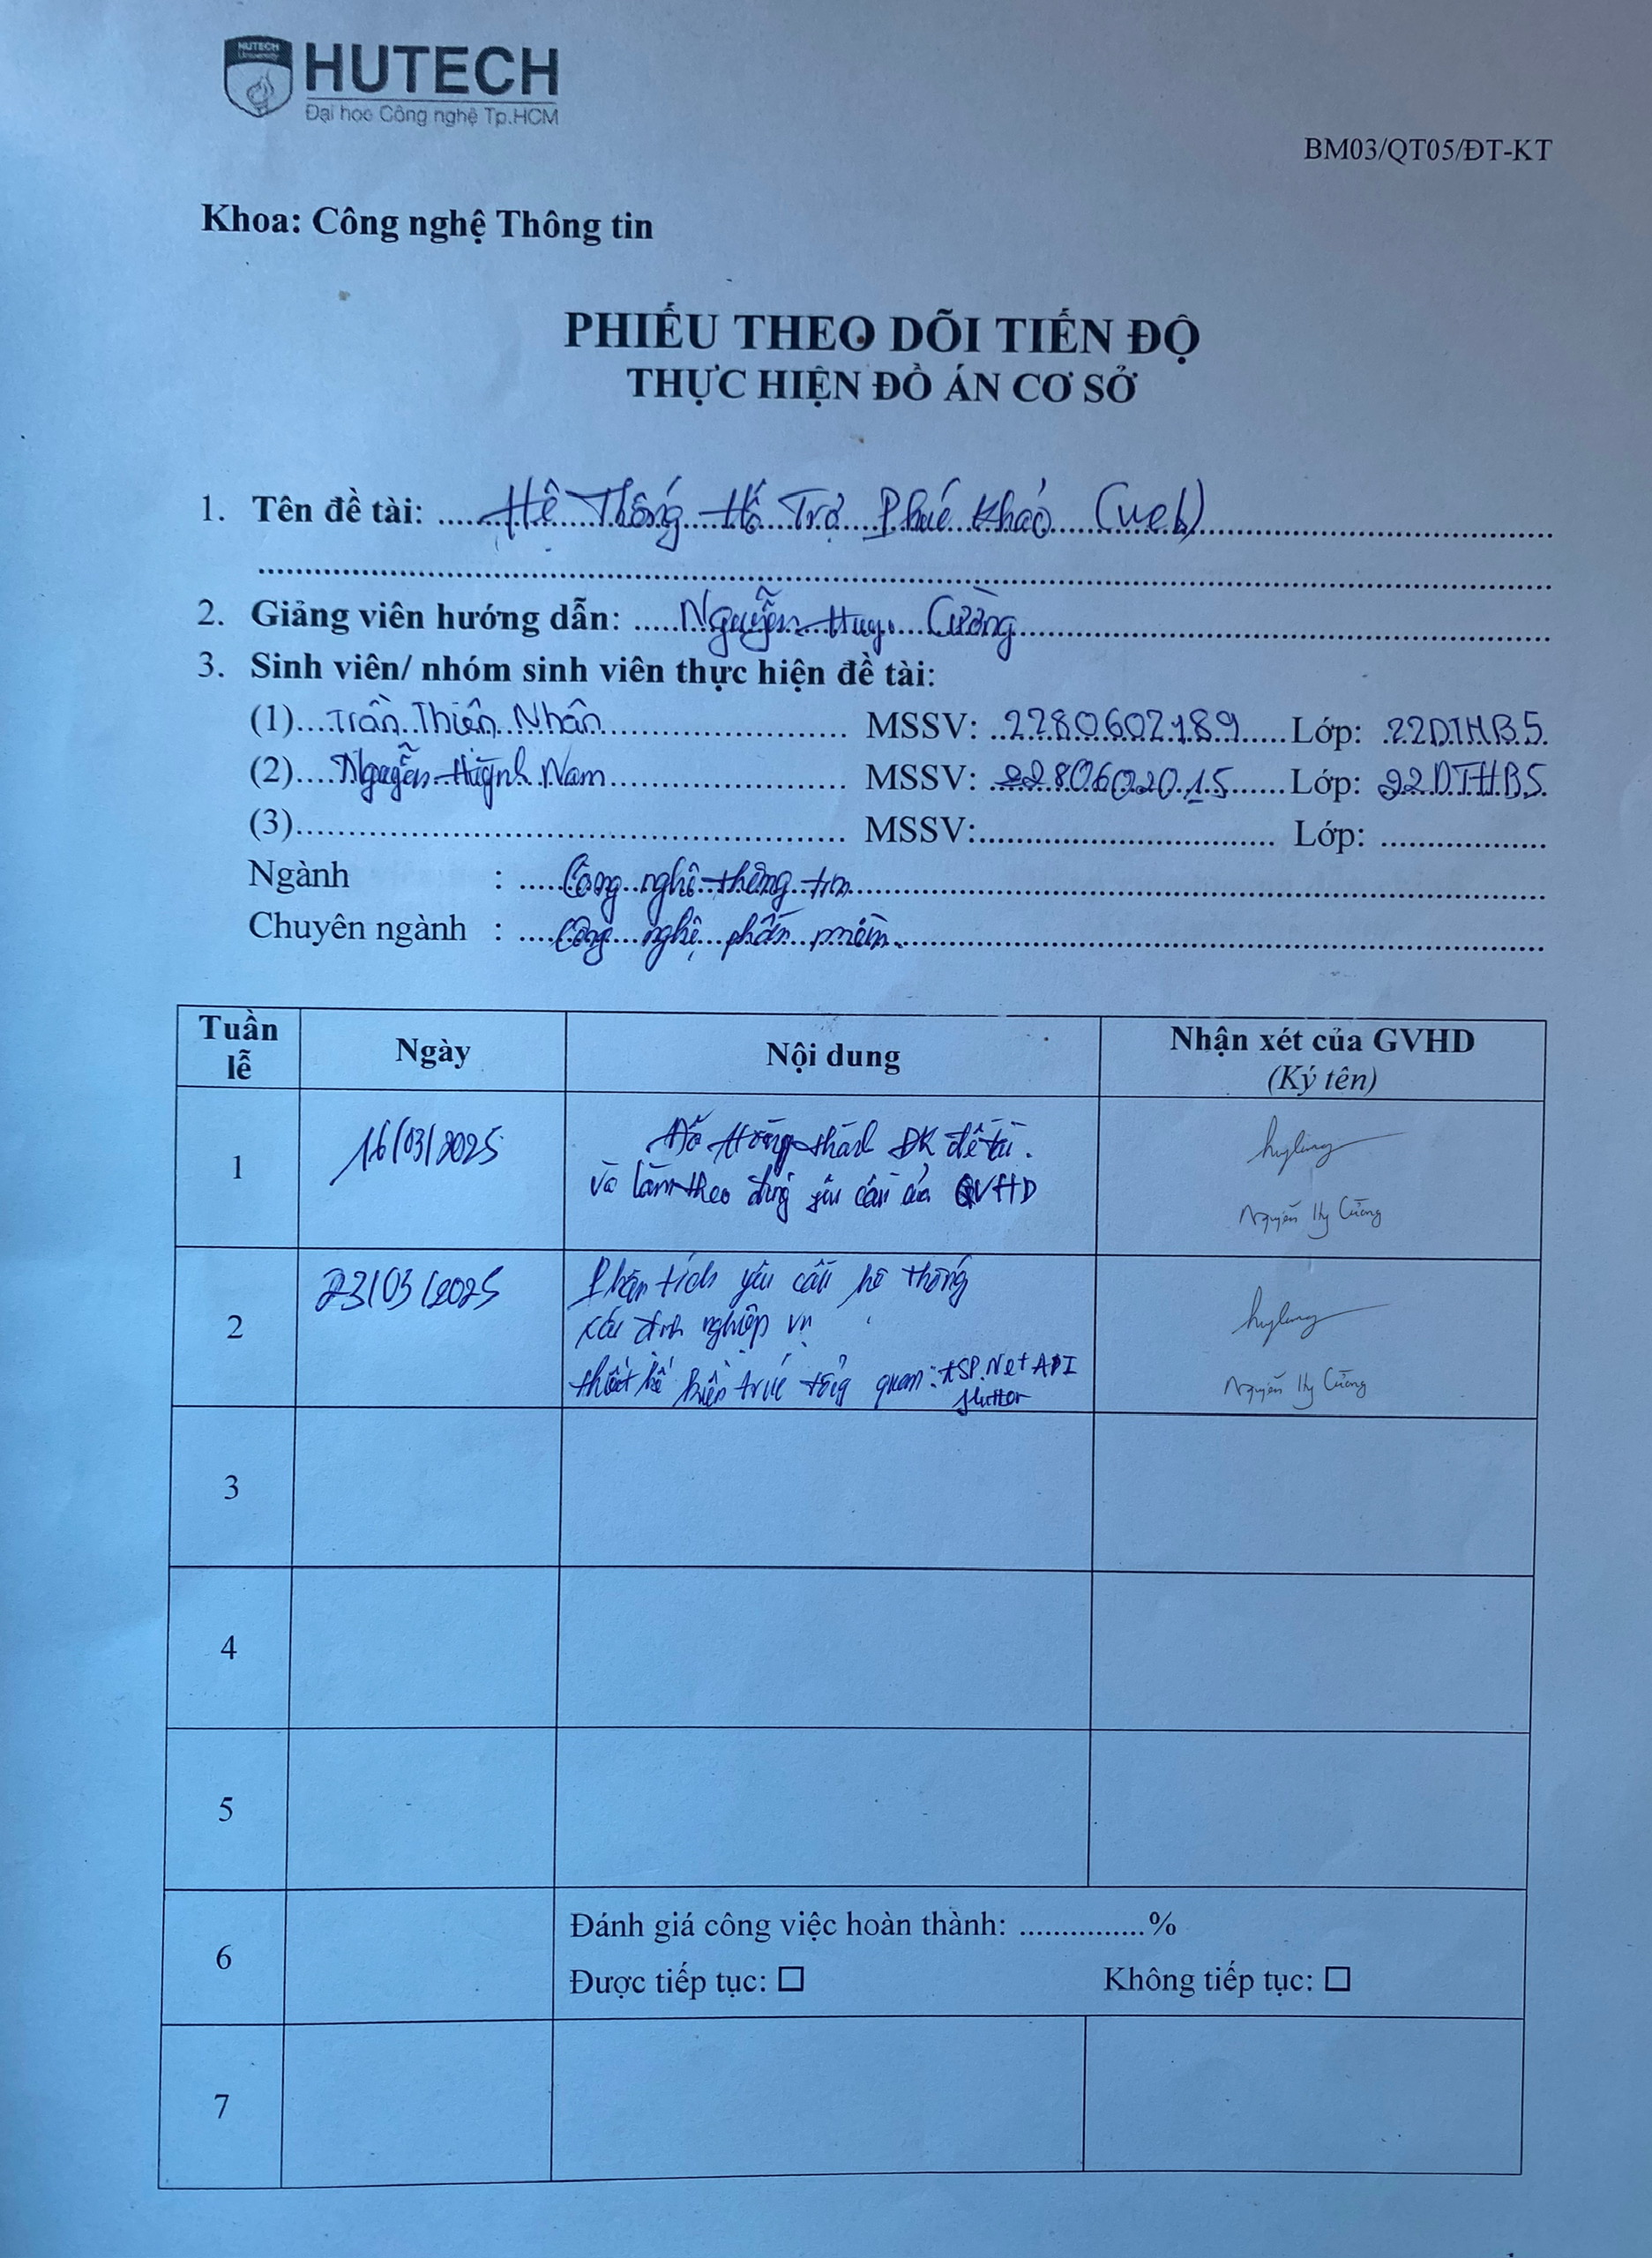 HUTECH
University
HUTECH
Đại học Công nghệ Tp.HCM
BM03/QT05/ĐT-KT
Khoa: Công nghệ Thông tin
PHIẾU THEO DÕI TIẾN ĐỘ
THỰC HIỆN ĐỒ ÁN CƠ SỞ
1. Tên đề tài: Hệ Thống Hỗ Trợ Phúc Khảo (web)
2. Giảng viên hướng dẫn: Nguyễn Huy Cường
3. Sinh viên/ nhóm sinh viên thực hiện đề tài:
(1) Trần Thiên Nhân MSSV: 2280602189 Lớp: 22DTHB5
(2) Nguyễn Huỳnh Nam MSSV: 2280602015 Lớp: 22DTHB5
(3) MSSV: Lớp:
Ngành : Công nghệ thông tin
Chuyên ngành : Công nghệ phần mềm
Tuần lễ Ngày Nội dung Nhận xét của GVHD
(Ký tên)
1 16/03/2025 thành ĐK đề tài.
và làm theo đúng yêu cầu của GVHD
Nguyễn Huy Cường
2 23/03/2025 Phân tích yêu cầu hệ thống
xác định nghiệp vụ
thiết kế kiến trúc tổng quan: ASP.Net API
flutter
Nguyễn Huy Cường
3
4
5
6 Đánh giá công việc hoàn thành: ...............%
Được tiếp tục: ☐ Không tiếp tục: ☐
7